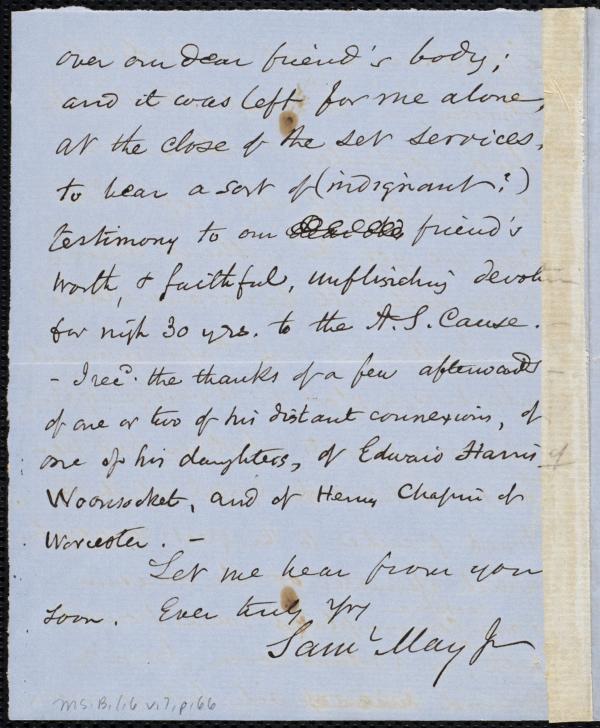 over our dear friend's body;
and it was left for me alone,
at the close of the set services,
to bear a sort of (indignant?)
testimony to our friend's
worth, & faithful, unflinching devotion
for nigh 30 yrs. to the A. S. Cause.
- I recd. the thanks of a few afterwards
of one or two of his distant connexions, of
one of his daughters, of Edward Harris of
Woonsocket, and of Henry Chapin of
Worcester. -
Let me hear from you
soon. Ever truly Yrs
Saml May Jr
MS. B. 1.6 v. 7, p. 66